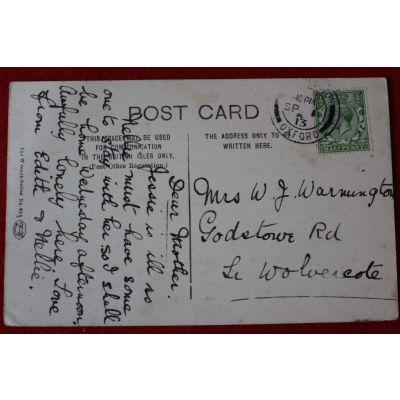 POST CARD
THIS SPACE MAY BE USED
FOR COMMUNICATION
IN THE BRITISH ISLES ONLY.
(Post Office Regulation).
THE ADDRESS ONLY TO BE
WRITTEN HERE.
Dear Mother.
Jessie is ill so
Nellie must have some
one to with her so I shall
be home Wednesday afternoon,
Awfully lonely here Love
from Edith & Nellie.
Mrs W J Warmington
Godstowe Rd
Lr Wolvercote
OXFORD
SP
13
HALFPENNY
The Wrench Series No.